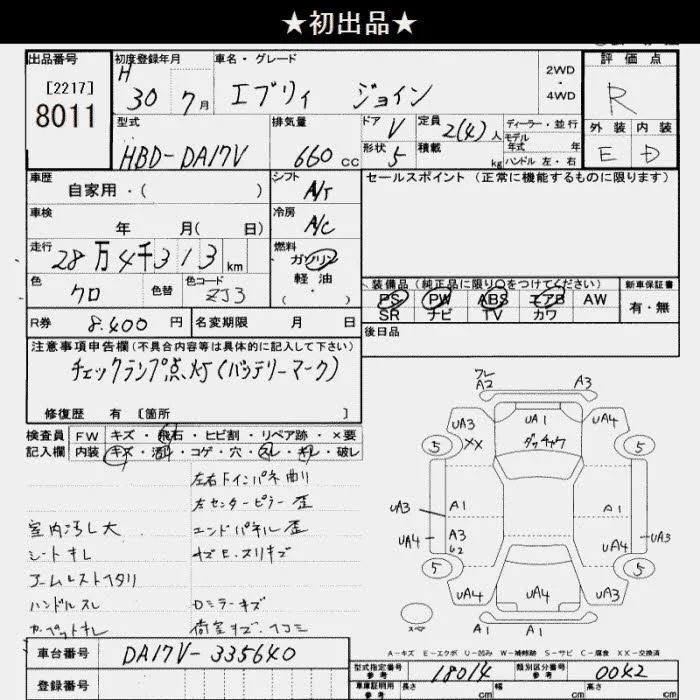 ★初出品★
出品番号
[2217]
8011
初度登録年月
H
30年 7月
車名・グレード
エブリィ ジョイン
2WD
・
4WD
評価点
R
外装 内装
E D
型式
HBD-DA17V
排気量
660 cc
ドア
V
形状
5
定員
2(4)人
積載
kg
ディーラー・並行
モデル
年式 年
ハンドル 左・右
車歴
自家用・( )
シフト
A/T
セールスポイント (正常に機能するものに限ります)
車検
年 月( 日)
冷房
A/C
走行
28万4千313 km
燃料
ガソリン
軽油
( ・ )
色
クロ
色替
色コード
ZJ3
装備品 (純正品に限り○をつけてください)
PS PW ABS エアB AW
SR ナビ TV カワ
新車保証書
有・無
R券 8,400 円
名変期限 月 日
後日品
注意事項申告欄(不具合内容等は具体的に記入して下さい)
チェックランプ点灯(バッテリーマーク)
修復歴 有 [箇所 ]
検査員
記入欄
FW キズ・飛石・ヒビ割・リペア跡・×要
内装 キズ・汚れ・コゲ・穴・スレ・キレ・破レ
左右ドインパネ曲り
左センターピラー歪
室内汚し大
エンドパネル歪
シートキレ
サビE、スリキズ
アームレストヘタリ
ハンドルスレ
Dミラーキズ
カーペットキレ
荷室キズ、ヘコミ
ワレ
A2
A3
UA3
XX
UA1
ダッチャク
UA4
5
5
UA3
A1
A1
UA4
A3
U2
UA4
UA3
5
5
UA4
UA4
UA4
スペア
A1
A1
A-キズ E-エクボ U-凹み W-補修跡 S-サビ C-腐食 XX-交換済
車台番号
DA17V-335640
登録番号
型式指定番号
参考
18014
類別区分番号
参考
0042
車庫証明用
参考
長さ cm
幅 cm
高さ cm